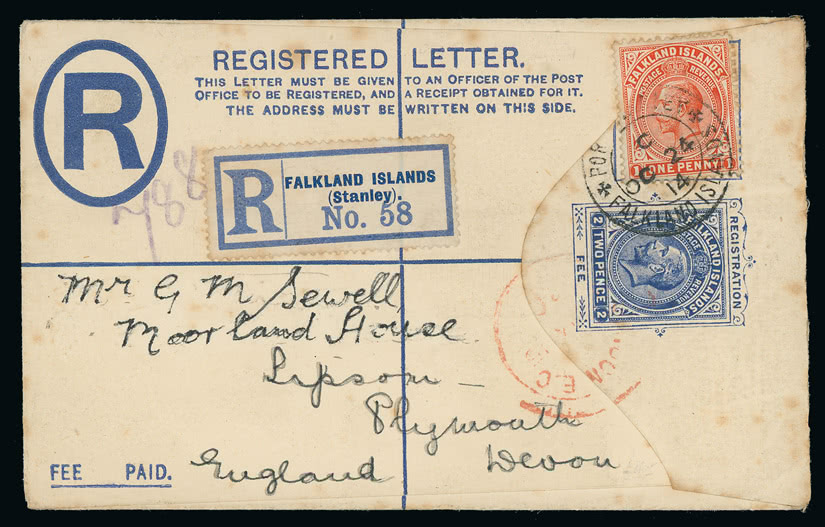 R
REGISTERED LETTER.
THIS LETTER MUST BE GIVEN TO AN OFFICER OF THE POST
OFFICE TO BE REGISTERED, AND A RECEIPT OBTAINED FOR IT.
THE ADDRESS MUST BE WRITTEN ON THIS SIDE.
FALKLAND ISLANDS
POSTAGE REVENUE
ONE PENNY
OC 24
14
FALKLAND ISLANDS
788
R
FALKLAND ISLANDS
(Stanley).
No. 58
REGISTRATION
FALKLAND ISLANDS
POSTAGE REVENUE
2 TWO PENCE 2
FEE
E.C.
Mr G M Sewell
Moorland House
Lipson
Plymouth
England Devon
FEE PAID.